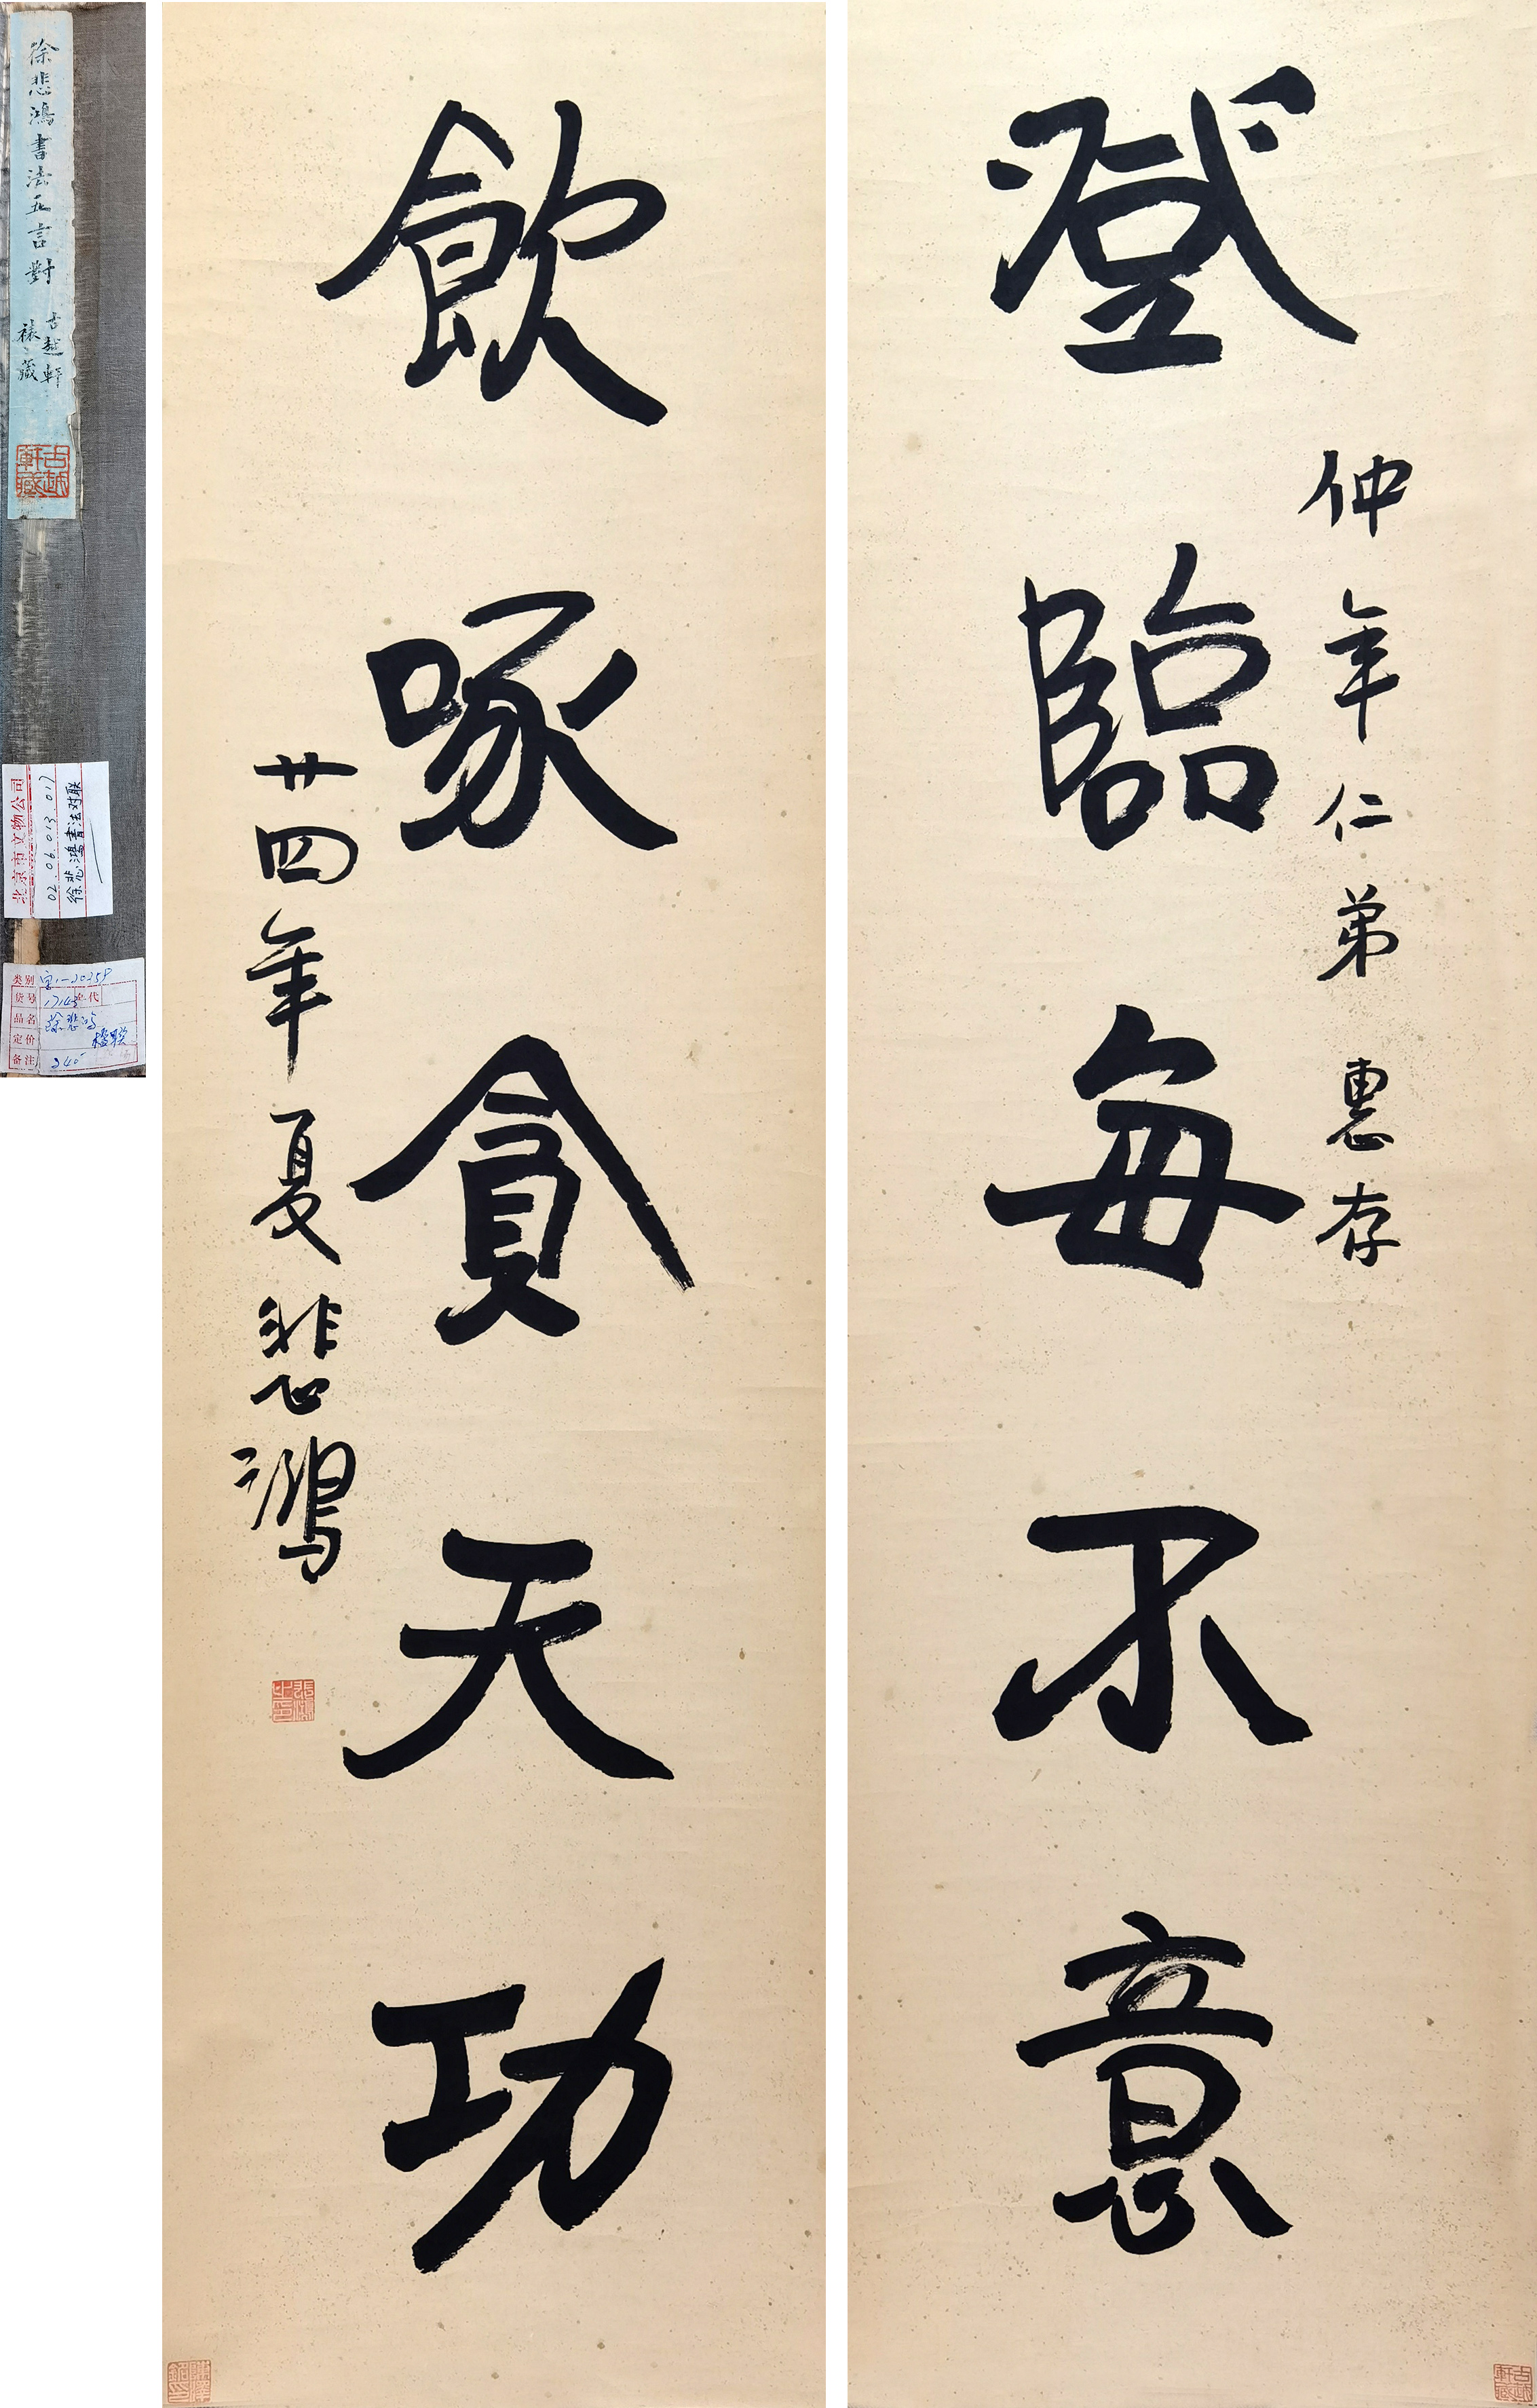 登臨每不意
仲年仁弟 惠存
飲啄貪天功
廿四年夏 悲鴻
徐悲鴻書法五言對
古越軒
裱藏
古越軒藏
北京市文物公司
02.06.013.017
徐悲鸿书法对联
类别
货号 年代
品名 徐悲鸿 楹联
定价
备注
古越軒藏